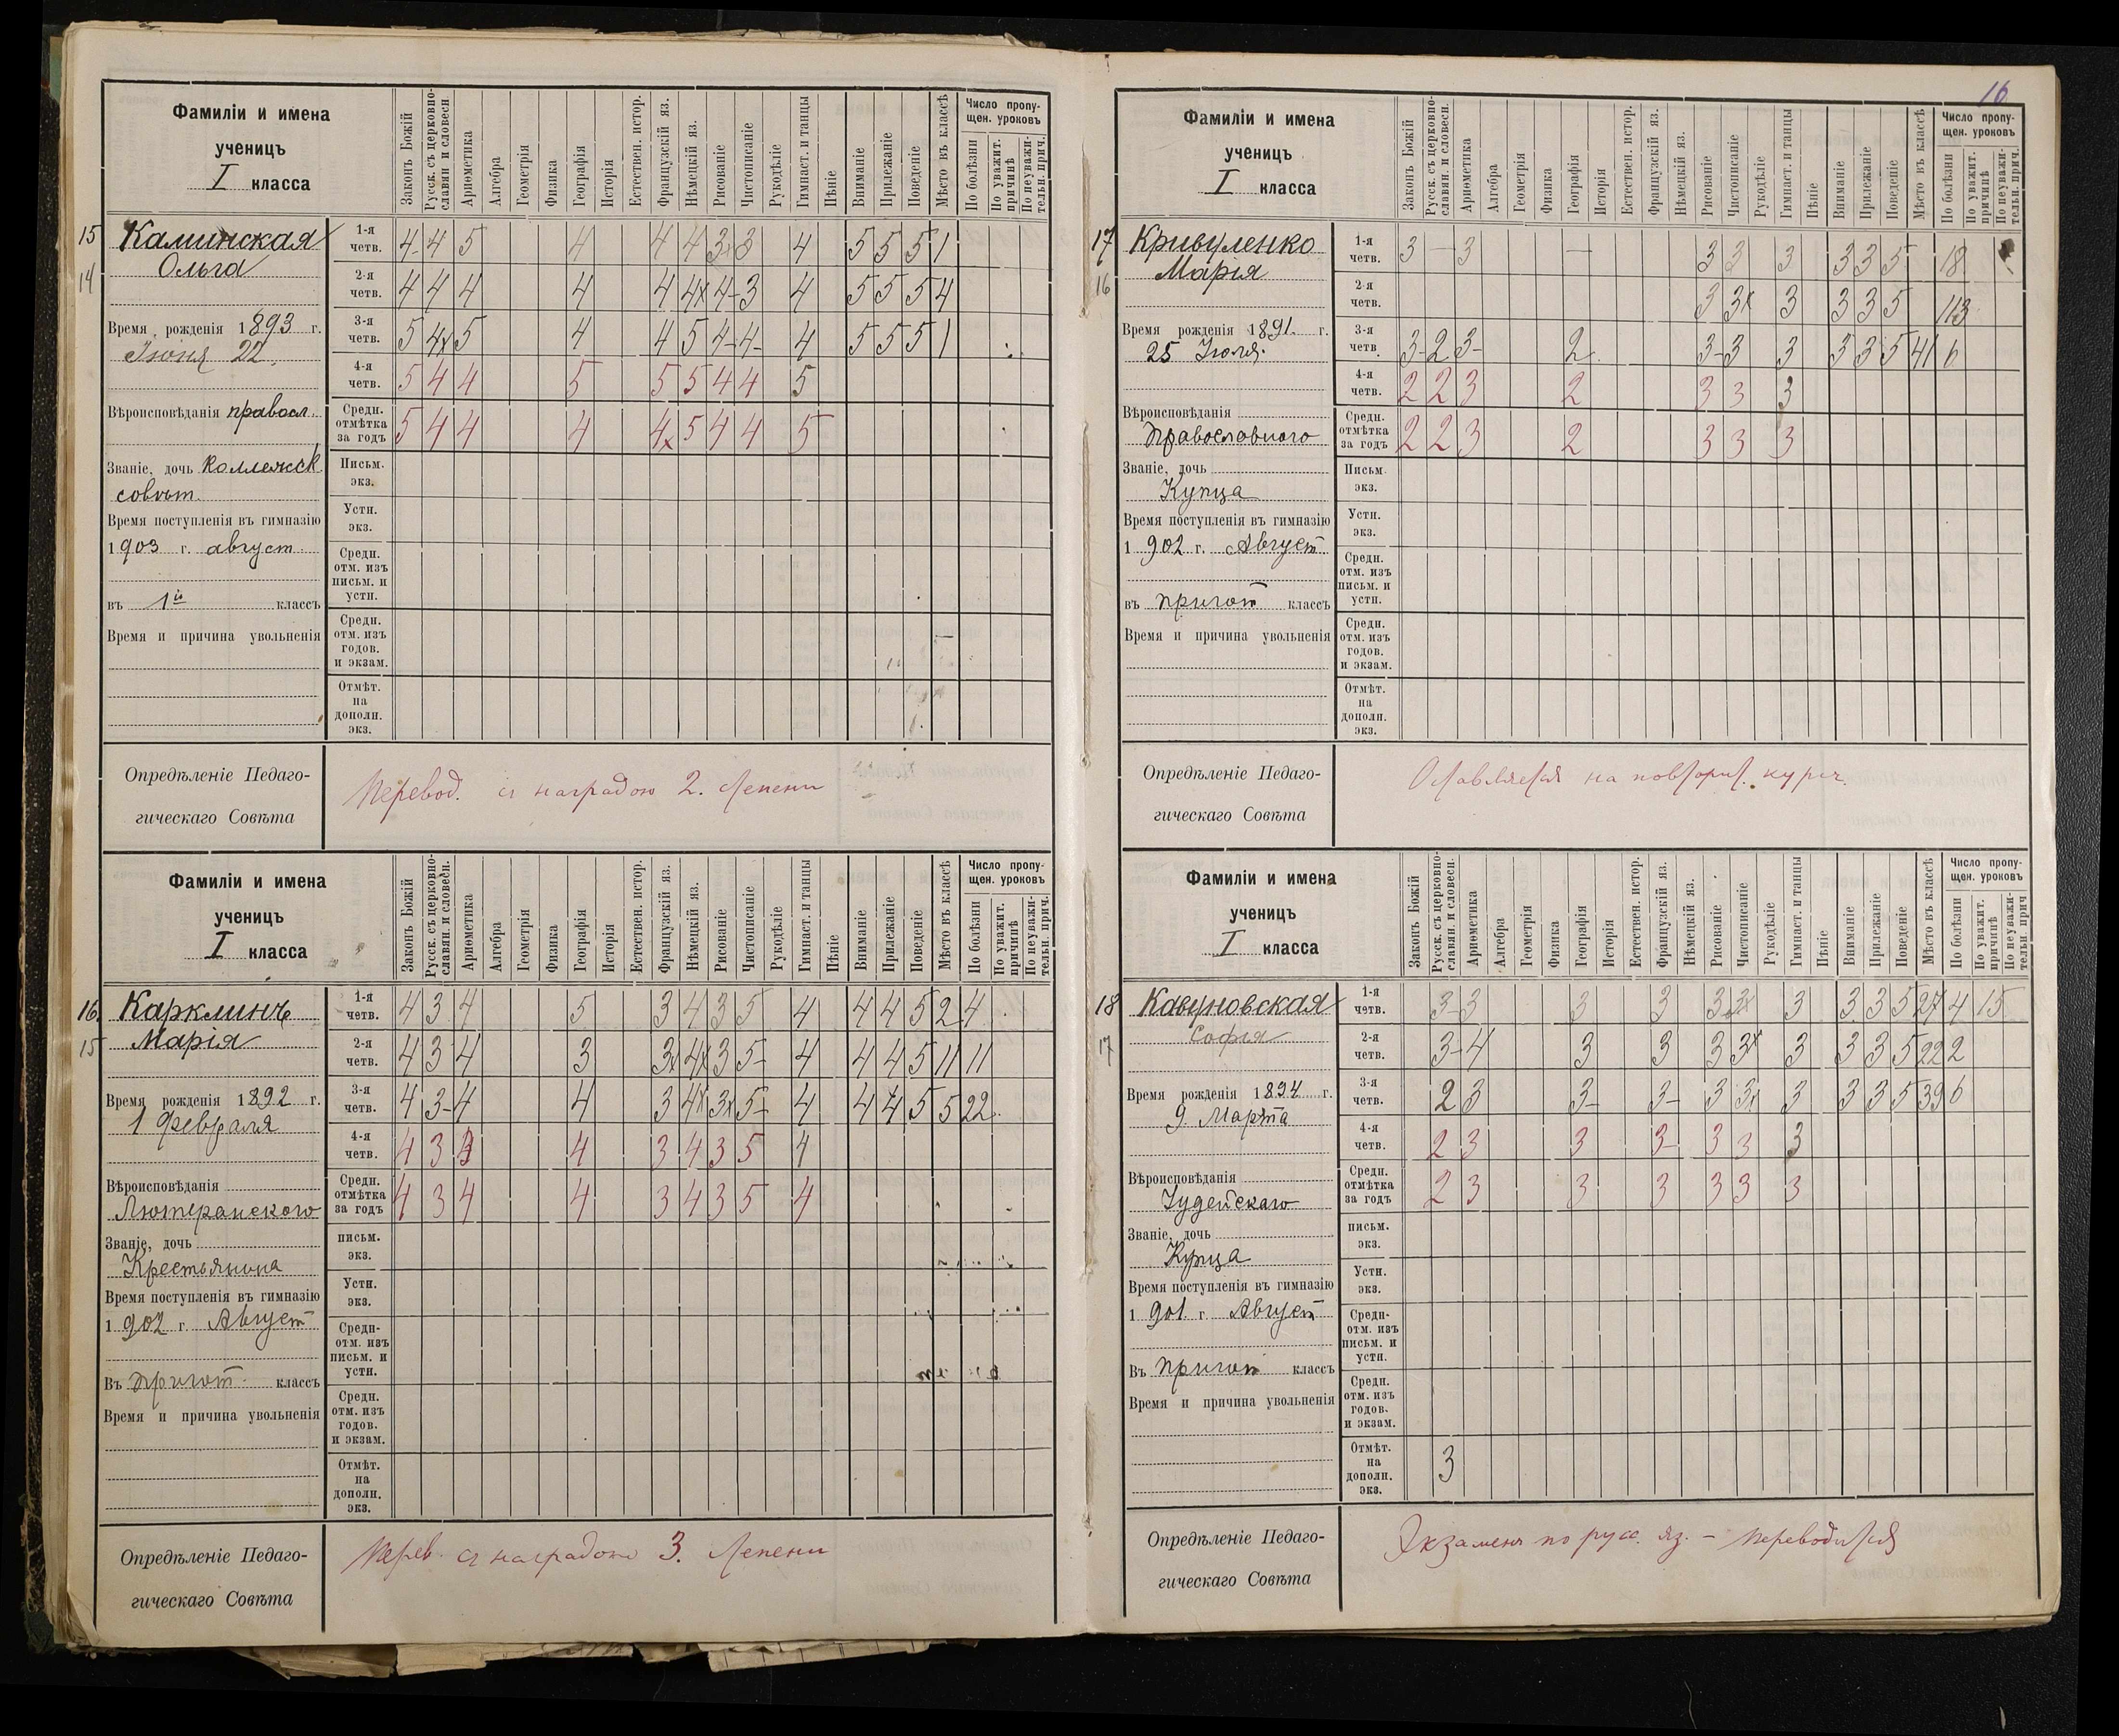 Фамиліи и имена
ученицъ
I класса
Законъ Божій
Русск. съ церковно-славян. и словесн.
Ариѳметика
Алгебра
Геометрія
Физика
Географія
Исторія
Естествен. истор.
Французскій яз.
Нѣмецкій яз.
Рисованіе
Чистописаніе
Рукодѣліе
Гимнаст. и танцы
Пѣніе
Вниманіе
Прилежаніе
Поведеніе
Мѣсто въ классѣ
Число пропу-
щен. уроковъ
По болѣзни
По уважит. причинѣ
По неуважи-тельн. прич.
15 Каминская
14 Ольга
Время рожденія 1893 г.
Іюня 22.
Вѣроисповѣданія правосл.
Званіе, дочь коллежск.
совѣт.
Время поступленія въ гимназію
1903 г. август.
въ 1й классъ
Время и причина увольненія
1-я четв. 4- 4 5 4 4 4 3 3 4 5 5 5 1
2-я четв. 4 4 4 4 4 4х 4- 3 4 5 5 5 4
3-я четв. 5 4х 5 4 4 5 4- 4- 4 5 5 5 1
4-я четв. 5 4 4 5 5 5 4 4 5
Средн. отмѣтка за годъ 5 4 4 4 4х 5 4 4 5
Письм. экз.
Устн. экз.
Средн. отм. изъ письм. и устн.
Средн. отм. изъ годов. и экзам.
Отмѣт. на дополн. экз.
Опредѣленіе Педаго-
гическаго Совѣта
Перевод. съ наградою 2. степени
Фамиліи и имена
ученицъ
I класса
Законъ Божій
Русск. съ церковно-славян. и словесн.
Ариѳметика
Алгебра
Геометрія
Физика
Географія
Исторія
Естествен. истор.
Французскій яз.
Нѣмецкій яз.
Рисованіе
Чистописаніе
Рукодѣліе
Гимнаст. и танцы
Пѣніе
Вниманіе
Прилежаніе
Поведеніе
Мѣсто въ классѣ
Число пропу-
щен. уроковъ
По болѣзни
По уважит. причинѣ
По неуважи-тельн. прич.
16. Карклинъ
15 Марія
Время рожденія 1892 г.
1 Февраля
Вѣроисповѣданія
Лютеранского
Званіе, дочь
Крестьянина
Время поступленія въ гимназію
1902 г Август
Въ пригот. классъ
Время и причина увольненія
1-я четв. 4 3 4 5 3 4 3 5 4 4 4 5 2 4
2-я четв. 4 3 4 3 3х 4х 3 5- 4 4 4 5 11 11
3-я четв. 4 3- 4 4 3 4х 3х 5- 4 4 4 5 5 22
4-я четв. 4 3 4 3 4 3 5 4
Средн. отмѣтка за годъ 4 3 4 4 3 4 3 5 4
письм. экз.
Устн. экз.
Средн- отм. изъ письм. и устн.
Средн. отм. изъ годов. и экзам.
Отмѣт. на дополн. экз.
Опредѣленіе Педаго-
гическаго Совѣта
Перев. съ наградою 3. степени
16
Фамиліи и имена
ученицъ
I класса
Законъ Божій
Русск. съ церковно-славян. и словесн.
Ариѳметика
Алгебра
Геометрія
Физика
Географія
Исторія
Естествен. истор.
Французскій яз.
Нѣмецкій яз.
Рисованіе
Чистописаніе
Рукодѣліе
Гимнаст. и танцы
Пѣніе
Вниманіе
Прилежаніе
Поведеніе
Мѣсто въ классѣ
Число пропу-
щен. уроковъ
По болѣзни
По уважит. причинѣ
По неуважи-тельн. прич.
17 Кривуленко
16 Марія
Время рожденія 1891. г.
25 Іюля.
Вѣроисповѣданія
Православного
Званіе, дочь
Купца
Время поступленія въ гимназію
1902 г. Август
въ пригот классъ
Время и причина увольненія
1-я четв. 3 — 3 — 3 3 3 3 3 5 18
2-я четв. 3 3х 3 3 3 5 113
3-я четв. 3- 2 3- 2 3- 3 3 3 3 5 41 6
4-я четв. 2 2 3 2 3 3 3
Средн. отмѣтка за годъ 2 2 3 2 3 3 3
Письм. экз.
Устн. экз.
Средн. отм. изъ письм. и устн.
Средн. отм. изъ годов. и экзам.
Отмѣт. на дополн. экз.
Опредѣленіе Педаго-
гическаго Совѣта
Оставляется на повторит. курсъ.
Фамиліи и имена
ученицъ
I класса
Законъ Божій
Русск. съ церковно-славян. и словесн.
Ариѳметика
Алгебра
Геометрія
Физика
Географія
Исторія
Естествен. истор.
Французскій яз.
Нѣмецкій яз.
Рисованіе
Чистописаніе
Рукодѣліе
Гимнаст. и танцы
Пѣніе
Вниманіе
Прилежаніе
Поведеніе
Мѣсто въ классѣ
Число пропу-
щен. уроковъ
По болѣзни
По уважит. причинѣ
По неуважи-тельн. прич
18 Кавуновская
17 Софія
Время рожденія 1894 г.
9. Марта
Вѣроисповѣданія
Іудейскаго
Званіе, дочь
Купца
Время поступленія въ гимназію
1901. г. Август
Въ пригот классъ
Время и причина увольненія
1-я четв. 3- 3 3 3 3 3х 3 3 3 5 27 4 15
2-я четв. 3- 4 3 3 3 3х 3 3 3 5 22 2
3-я четв. 2 3 3- 3- 3 3х 3 3 3 5 39 6
4-я четв. 2 3 3 3- 3 3 3
Средн. отмѣтка за годъ 2 3 3 3 3 3 3
письм. экз.
Устн. экз.
Средн- отм. изъ письм. и устн.
Средн. отм. изъ годов. и экзам.
Отмѣт. на дополн. экз. 3
Опредѣленіе Педаго-
гическаго Совѣта
Экзаменъ по русс. яз. — переводится